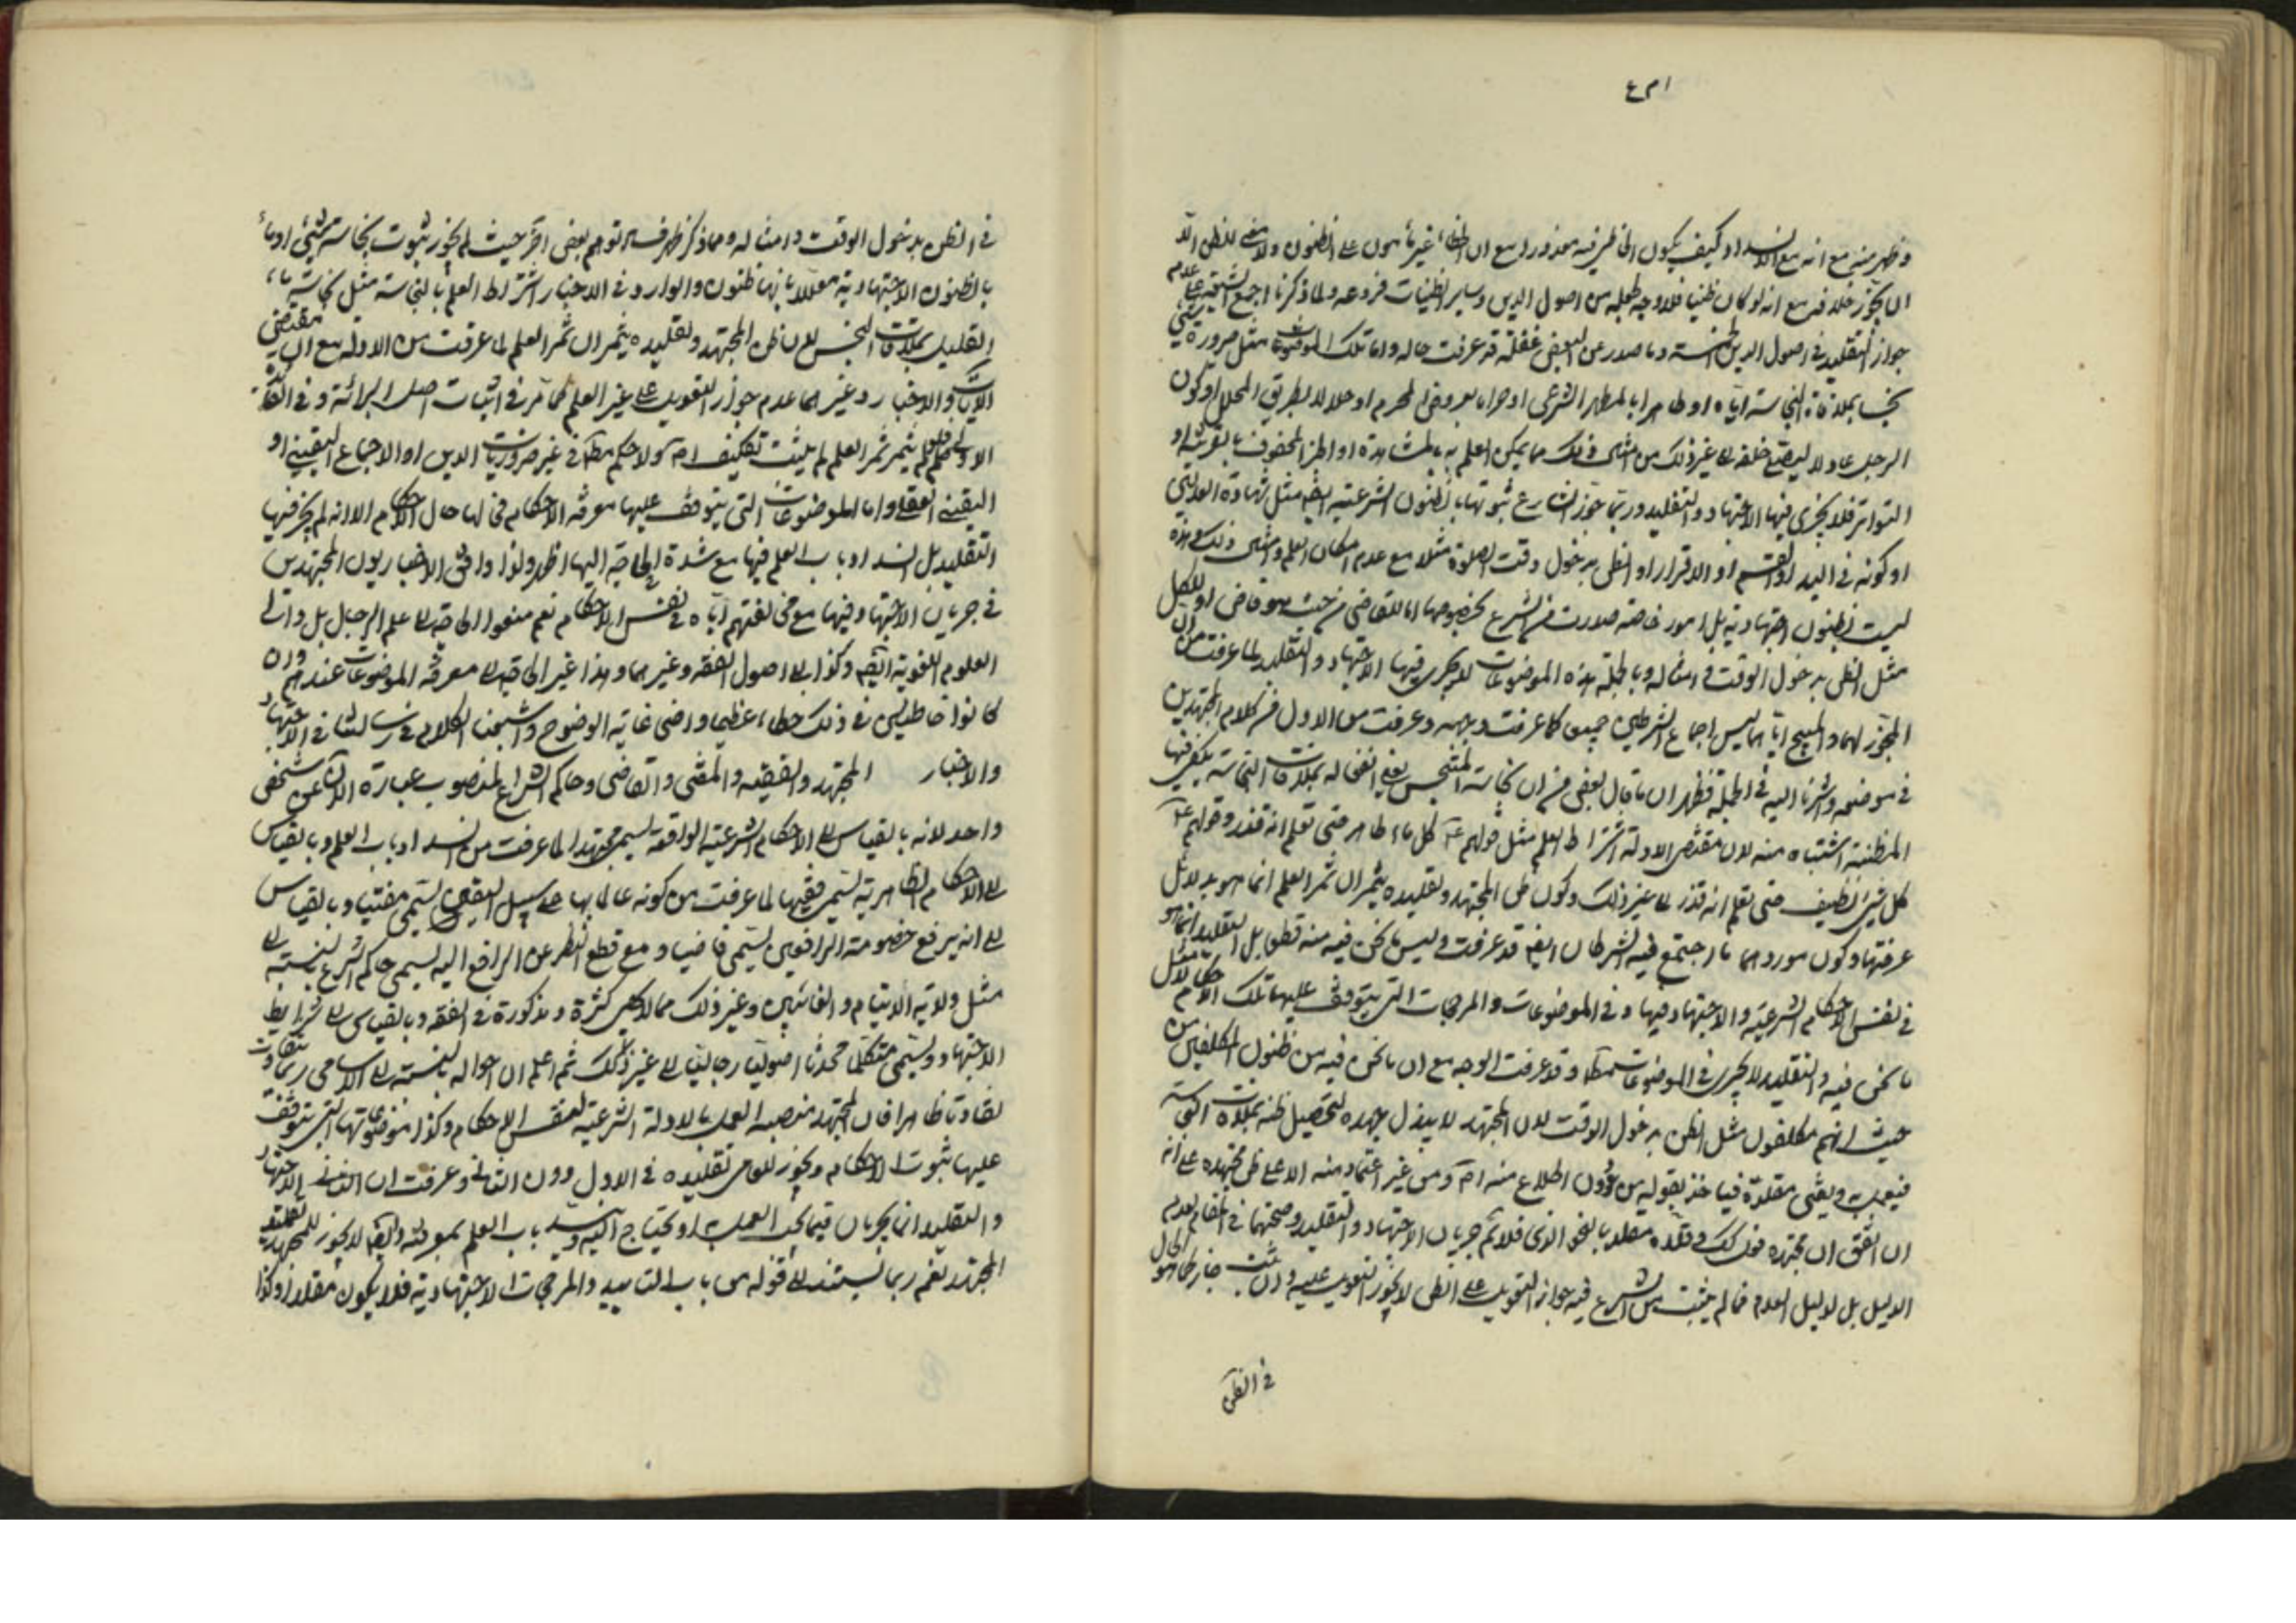 وظهر منه مع انه مع الانسداد كيف يكون الخاطى فيه معذورا مع ان الخطاء غير مأمون على الظنون ولا معنى للظن الا
ان يجوز خلافه مع انه لو كان ظنيا فلا وجه لجعله من اصول الدين وساير الظنيات فروعه ولما ذكرنا اجمع الشيعة على عدم
جواز التقليد في اصول الدين الخمسة وما صدر عن البعض غفلة قد عرفت حاله واما تلك الموضوعات مثل صرورة شيء
نجسا بملاقاة النجاسة اياه او طاهرا بالمطهر الشرعي او حراما بعروض المحرم او حلالا بطريق المحلل او كون
الرجل عادلا ليصح خلفه الى غير ذلك من امثال ذلك مما يمكن العلم به بالمشاهدة او الخبر المحفوف بالقرينة او
التواتر فلا يجري فيها الاجتهاد والتقليد وربما جوز الشارع ثبوتها بالظنون الشرعية ايضا مثل شهادة العدلين
او كونه في اليد او القسم او الاقرار او الظن بدخول وقت الصلوة مثلا مع عدم امكان العلم وامثال ذلك وهذه
ليست ظنون اجتهادية بل امور خاصة صدرت من الشرع بخصوصها اما للقاضي من حيث هو قاض او للكل
مثل الظن بدخول الوقت وامثاله وبالجملة هذه الموضوعات لا يجري فيها الاجتهاد والتقليد لما عرفت من ان
المجوز لهما والمبيح اياهما ليس اجماع الشرطين جميعا كما عرفت وجهه وعرفت من الاول من كلام المجتهدين
في موضعه واشرنا اليه في الجملة فظهر ان ما قال بعض من ان نجاسة المتنجس يعني انفعاله بملاقات النجاسة يكفي فيها
المظنة اشتباه منه لان مقتضى الادلة اشتراط العلم مثل قولهم ع كل ماء طاهر حتى تعلم انه قذر وقولهم ع
كل شيء نظيف حتى تعلم انه قذر الى غير ذلك وكون ظن المجتهد وتقليده يثمران ثمر العلم انما هو بدلائل
عرفتها وكون موردهما ما اجتمع فيه الشرطان ايضا قد عرفت وليس ما نحن فيه منه قطعا بل التقليد انما هو
في نفس الاحكام الشرعية والاجتهاد فيها وفي الموضوعات والمرجحات التي يتوقف عليها تلك الاحكام لا مثل
ما نحن فيه والتقليد لا يجري في الموضوعات مطلقا وقد عرفت الوجه مع ان ما نحن فيه من ظنون المكلفين من
حيث انهم مكلفون مثل الظن بدخول الوقت لان المجتهد لا يبذل جهده لتحصيل ظنه بملاقات النجاسة
فيعمل به ويفتي مقلده فياخذ بقوله من دون اطلاع منه اصلا ومن غير اعتماد منه الا على ظن مجتهده على انه
ان اتفق ان مجتهده فعل ذلك وقلده مقلد بالنحو الذي فلا ثم جريان الاجتهاد والتقليد وصحتهما في المقام لعدم
الدليل بل لدليل العدم فما لم يثبت من الشرع فيه جواز التعويل على الظن لا يجوز التعويل عليه وان ثبت جاز كما هو الحال
في الظن
في الظن بدخول الوقت وامثاله ومما ذكر ظهر فساد توهم بعض اخر حيث لم يجوز ثبوت نجاسة شيء او ماء
بالظنون الاجتهادية معللا بانها ظنون والوارد في الاخبار اشتراط العلم بالنجاسة مثل نجاسة ماء
القليل بملاقات النجس لان ظن المجتهد وتقليده يثمران ثمر العلم لما عرفت من الادلة مع ان مقتضى
الايات والاخبار وغيرهما عدم جواز التعويل على غير العلم كما مر في اثبات اصل البرائة وفي الفائدة
الاولى فلو لم يثمر ثمر العلم لم يثبت تكليف اصلا ولا حكم مطلقا في غير ضروريات الدين او الاجماع اليقيني او
اليقيني العقلي واما الموضوعات التي يتوقف عليها معرفة الاحكام فحالها حال الاحكام الا انه لم يجز فيها
التقليد بل انسداد باب العلم فيها مع شدة الحاجة اليها اظهر ولذا وافق الاخباريون المجتهدين
في جريان الاجتهاد فيها مع مخالفتهم اياه في نفس الاحكام نعم منعوا الحاجة الى علم الرجال بل والى
العلوم اللغوية ايضا وكذا الى اصول الفقه وغيرهما وهذا غير الحاجة الى معرفة الموضوعات عندهم وان
كانوا خاطئين في ذلك خطاء عظيما واضحا غاية الوضوح واشبعنا الكلام في رسالتنا في الاجتهاد
والاخبار المجتهد والفقيه والمفتي والقاضي وحاكم الشرع المنصوب عبارة الان عن شخص
واحد لانه بالقياس الى الاحكام الشرعية الواقعة يسمى مجتهدا لما عرفت من انسداد باب العلم وبالقياس
الى الاحكام الظاهرية يسمى فقيها لما عرفت من كونه عالما بها على سبيل اليقين يسمى مفتيا وبالقياس
الى انه يرفع خصومة المترافعين يسمى قاضيا ومع قطع النظر عن الرافع اليه يسمى حاكم الشرع بالنسبة الى
مثل ولاية الايتام والغائبين وغير ذلك مما لا يحصى كثرة ومذكورة في الفقه وبالقياس الى شرايط
الاجتهاد ويسمى متكلما محدثا اصوليا رجاليا الى غير ذلك ثم اعلم ان احواله بالنسبة الى الاسامي ربما تتفاوت
تفاوتا ظاهرا فان المجتهد منصبه العمل بالادلة الشرعية لنفس الاحكام وكذا موضوعاتها التي يتوقف
عليها ثبوت الاحكام ويجوز للعامي تقليده في الاول دون الثاني وعرفت ان الثاني الاجتهاد
والتقليد انما يجريان فيما يجب العمل به او يحتاج اليه وينسد باب العلم بمعرفته وايضا لا يجوز للمجتهد تقليد
المجتهد نعم ربما يستند الى قوله من باب التاييد والمرجحات الاجتهادية فلا يكون مقلدا وكذا